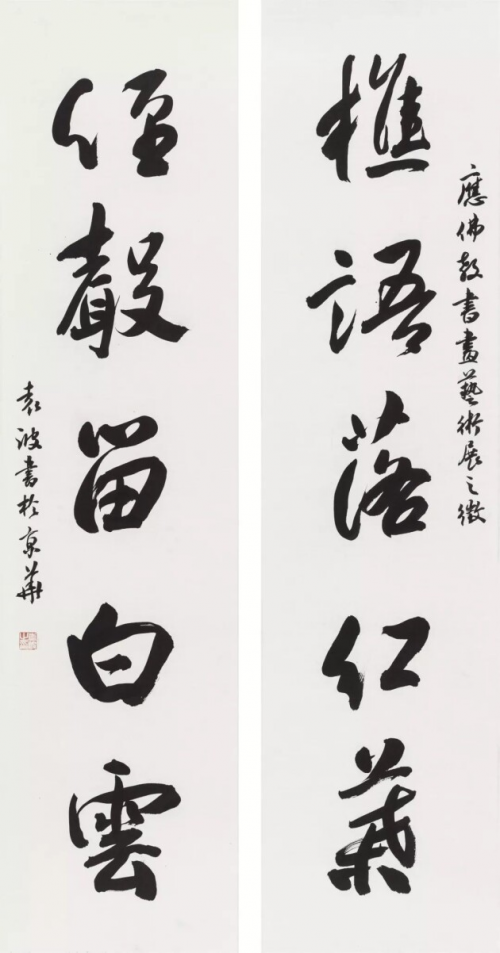 應佛教書畫藝術展之徵
樵語落紅葉
經聲留白雲
袁波書於京華